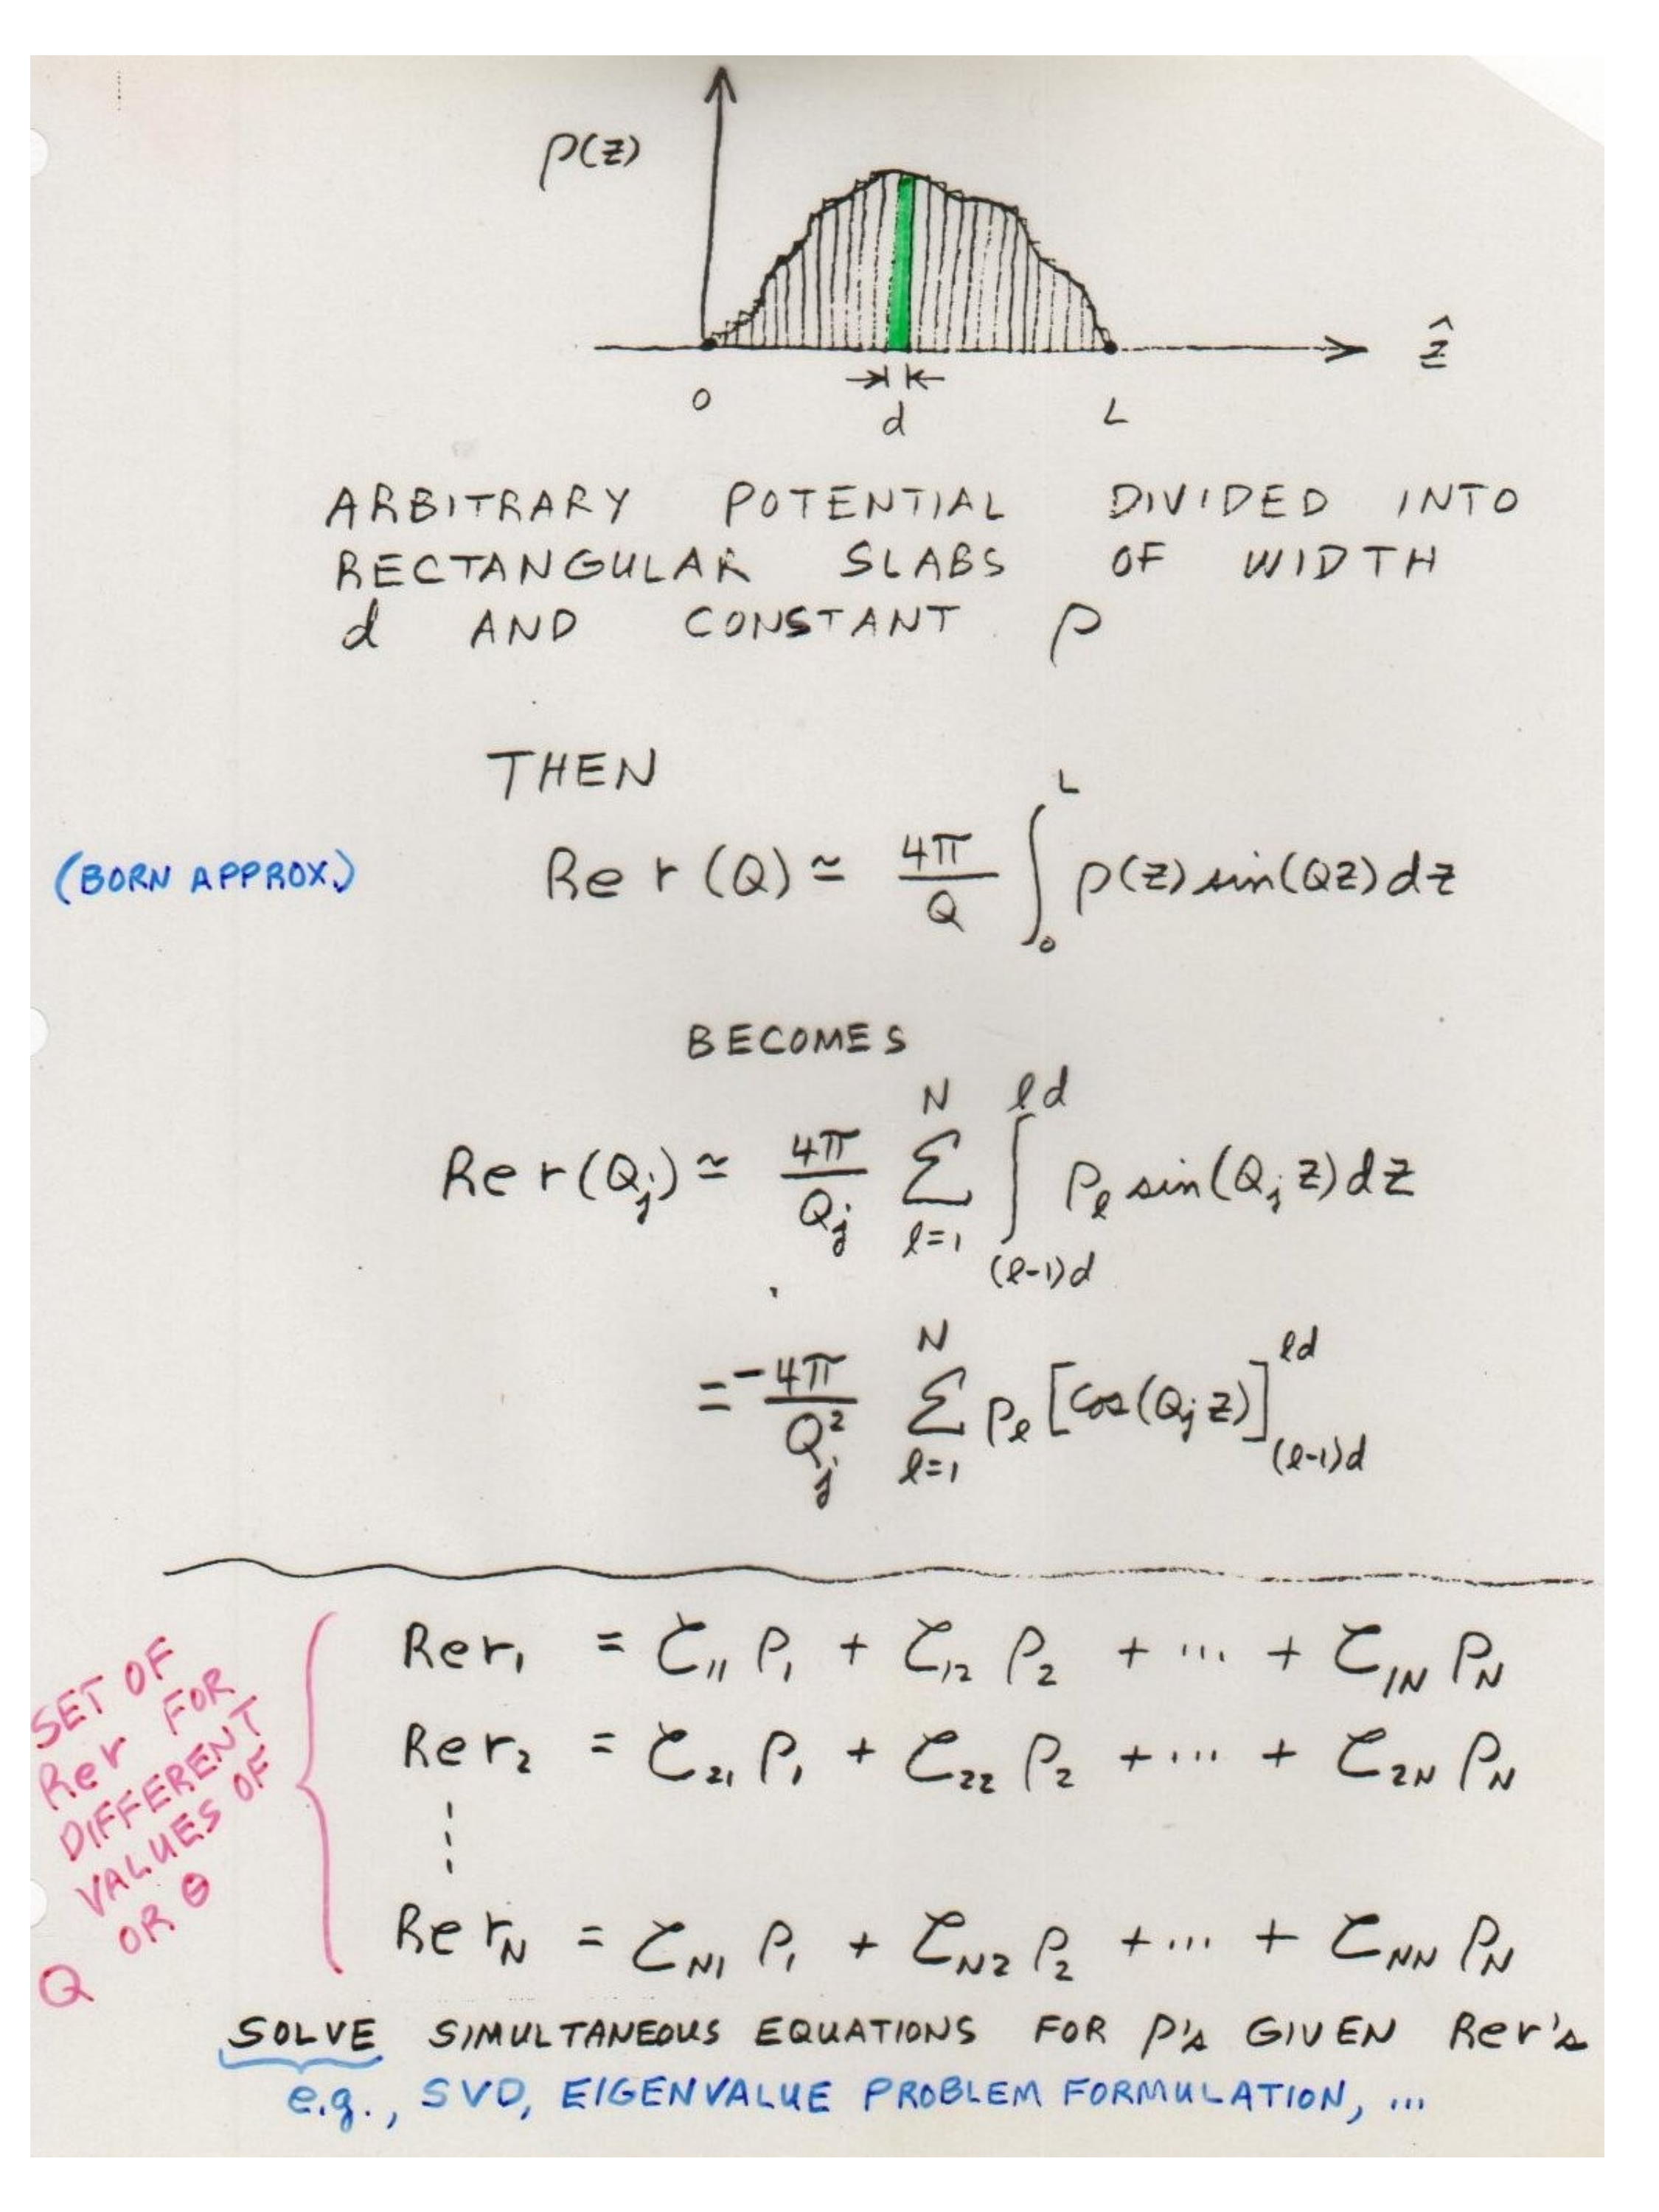 ρ(z)
ẑ
0 d L
ARBITRARY POTENTIAL DIVIDED INTO
RECTANGULAR SLABS OF WIDTH
d AND CONSTANT ρ
THEN
(BORN APPROX.) Re r(Q) ≃ 4π/Q ∫₀ᴸ ρ(z) sin(Qz) dz
BECOMES
Re r(Q_j) ≃ 4π/Q_j Σ_{l=1}^{N} ∫_{(l-1)d}^{ld} ρ_l sin(Q_j z) dz
= -4π/Q_j² Σ_{l=1}^{N} ρ_l [cos(Q_j z)]_{(l-1)d}^{ld}
SET OF
Rer FOR
DIFFERENT
VALUES OF
Q OR θ
Rer₁ = ζ₁₁ ρ₁ + ζ₁₂ ρ₂ + ... + ζ_{1N} ρ_N
Rer₂ = ζ₂₁ ρ₁ + ζ₂₂ ρ₂ + ... + ζ_{2N} ρ_N
⋮
Rer_N = ζ_{N1} ρ₁ + ζ_{N2} ρ₂ + ... + ζ_{NN} ρ_N
SOLVE SIMULTANEOUS EQUATIONS FOR ρ's GIVEN Rer's
e.g., SVD, EIGENVALUE PROBLEM FORMULATION, ...